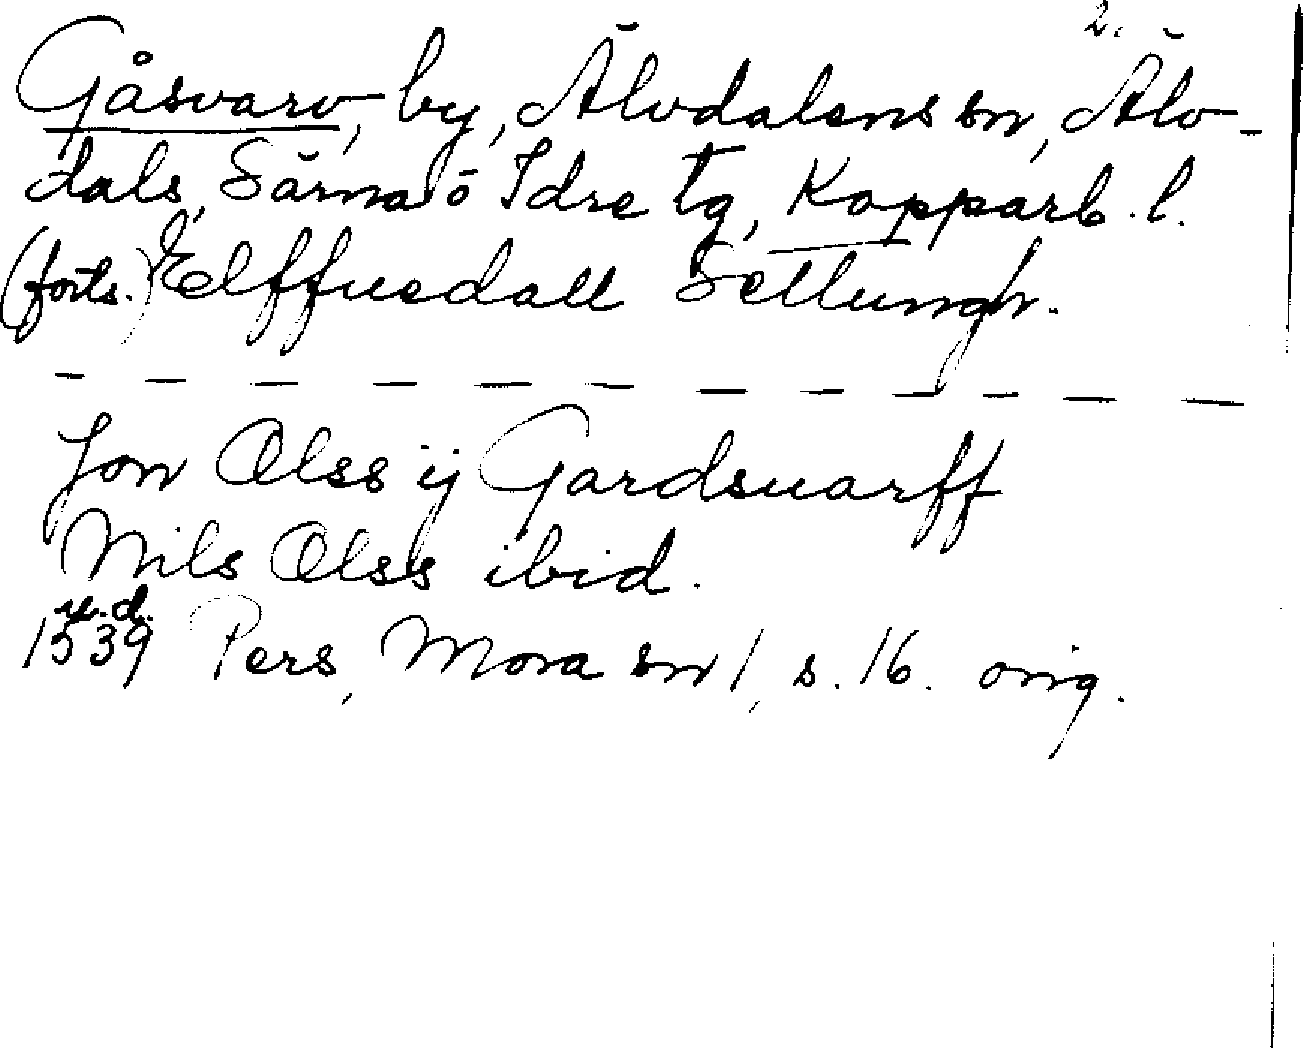 2.
Gåsvarv, by, Älvdalens sn, Älv-
dals, Särna o Idre tg, Kopparb. l.
(forts.) Elffuedall Setlungh.
Jon Olss ij Gardsuarff
Nils Olss ibid.
u.d.
1539 Pers, Mora sn 1, s. 16. orig.